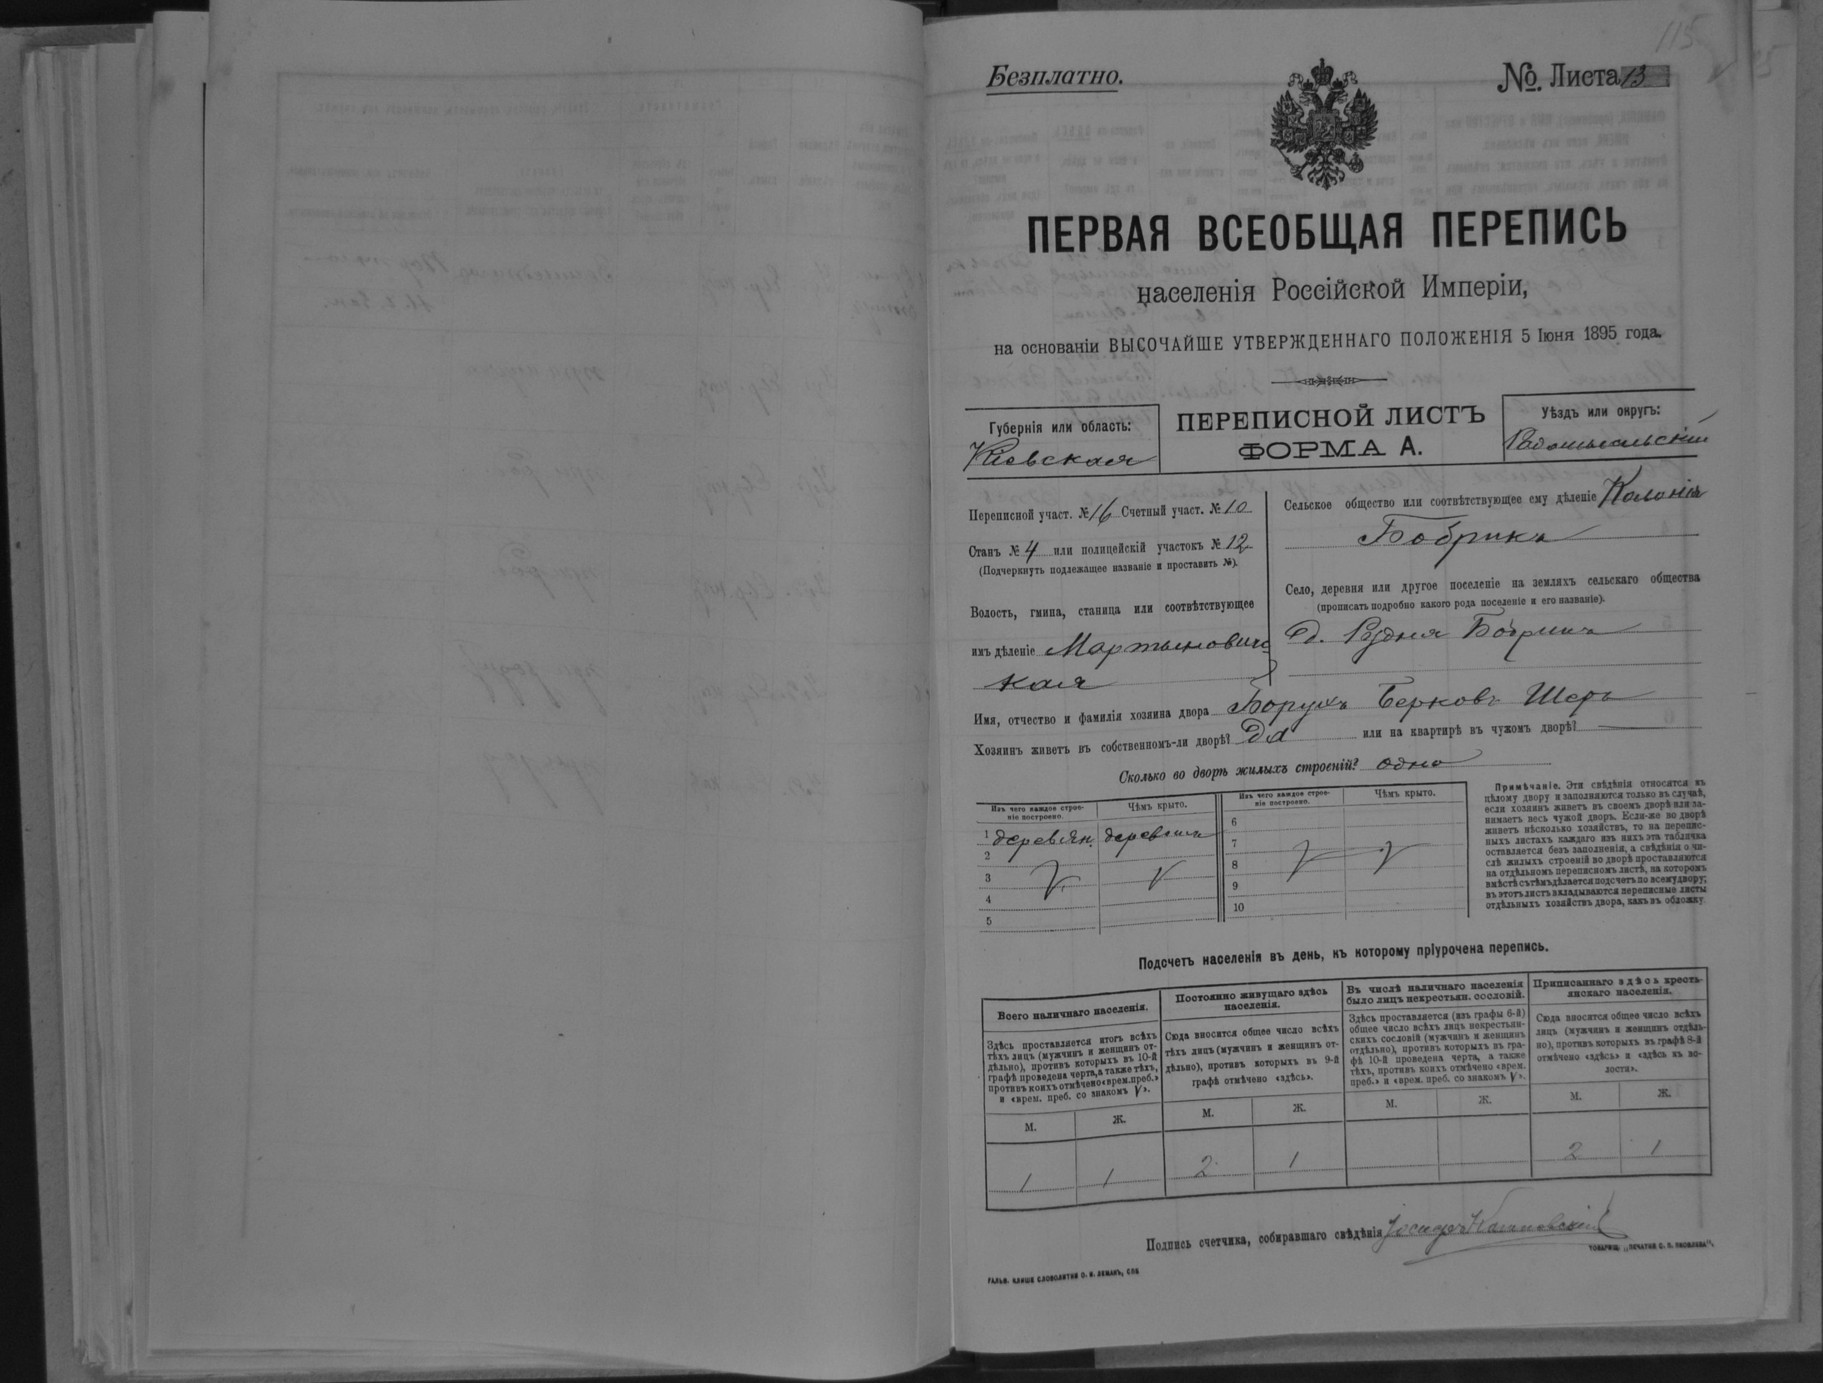 115
Безплатно.
№. Листа 13
ПЕРВАЯ ВСЕОБЩАЯ ПЕРЕПИСЬ
населенія Россійской Имперіи,
на основаніи ВЫСОЧАЙШЕ УТВЕРЖДЕННАГО ПОЛОЖЕНІЯ 5 Іюня 1895 года.
Губернія или область:
Кіевская
ПЕРЕПИСНОЙ ЛИСТЪ
ФОРМА А.
Уѣздъ или округъ:
Радомысльскій
Переписной участ. № 16 Счетный участ. № 10
Станъ № 4 или полицейскій участокъ № 12
(Подчеркнуть подлежащее названіе и проставить №).
Волость, гмина, станица или соотвѣтствующее
имъ дѣленіе Мартынович
кая
Сельское общество или соотвѣтствующее ему дѣленіе Колонія
Бобрикъ
Село, деревня или другое поселеніе на земляхъ сельскаго общества
(прописать подробно какого рода поселеніе и его названіе).
д. Рудня Бобрикъ
Имя, отчество и фамилія хозяина двора Борухъ Берковъ Шеръ
Хозяинъ живетъ въ собственномъ-ли дворѣ? Да или на квартирѣ въ чужомъ дворѣ?
Сколько во дворѣ жилыхъ строеній? одно
Изъ чего каждое строе-
ніе построено.
Чѣмъ крыто.
Изъ чего каждое строе-
ніе построено.
Чѣмъ крыто.
1 деревян. деревомъ
2
3
4
5
6
7
8
9
10
Примѣчаніе. Эти свѣдѣнія относятся къ
цѣлому двору и заполняются только въ случаѣ,
если хозяинъ живетъ въ своемъ дворѣ или за-
нимаетъ весь чужой дворъ. Если-же во дворѣ
живетъ нѣсколько хозяйствъ, то на перепис-
ныхъ листахъ каждаго изъ нихъ эта табличка
оставляется безъ заполненія, а свѣдѣнія о чи-
слѣ жилыхъ строеній во дворѣ проставляются
на отдѣльномъ переписномъ листѣ, на которомъ
вмѣстѣ съ тѣмъ дѣлается подсчетъ по всему двору;
въ этотъ листъ вкладываются переписные листы
отдѣльныхъ хозяйствъ двора, какъ въ обложку.
Подсчетъ населенія въ день, къ которому пріурочена перепись.
Всего наличнаго населенія.
Здѣсь проставляется итогъ всѣхъ
тѣхъ лицъ (мужчинъ и женщинъ от-
дѣльно), противъ которыхъ въ 10-й
графѣ проведена черта, а также тѣхъ,
противъ коихъ отмѣчено «врем. преб.»
и «врем. преб. со знакомъ V».
Постоянно живущаго здѣсь
населенія.
Сюда вносится общее число всѣхъ
тѣхъ лицъ (мужчинъ и женщинъ от-
дѣльно), противъ которыхъ въ 9-й
графѣ отмѣчено «здѣсь».
Въ числѣ наличнаго населенія
было лицъ некрестьян. сословій.
Здѣсь проставляется (изъ графы 6-й)
общее число всѣхъ лицъ некрестьян-
скихъ сословій (мужчинъ и женщинъ
отдѣльно), противъ которыхъ въ гра-
фѣ 10-й проведена черта, а также
тѣхъ, противъ коихъ отмѣчено «врем.
преб.» и «врем. преб. со знакомъ V».
Приписаннаго здѣсь кресть-
янскаго населенія.
Сюда вносится общее число всѣхъ
лицъ (мужчинъ и женщинъ отдѣль-
но), противъ которыхъ въ графѣ 8-й
отмѣчено «здѣсь» и «здѣсь къ во-
лости».
М. Ж. М. Ж. М. Ж. М. Ж.
1 1 2 1 2 1
Подпись счетчика, собиравшаго свѣдѣнія Іосифъ
ГАЛЬВ. КЛИШЕ СЛОВОЛИТНИ О. И. ЛЕМАНЪ, СПБ
ТОВАРИЩ. „ПЕЧАТНЯ С. П. ЯКОВЛЕВА".